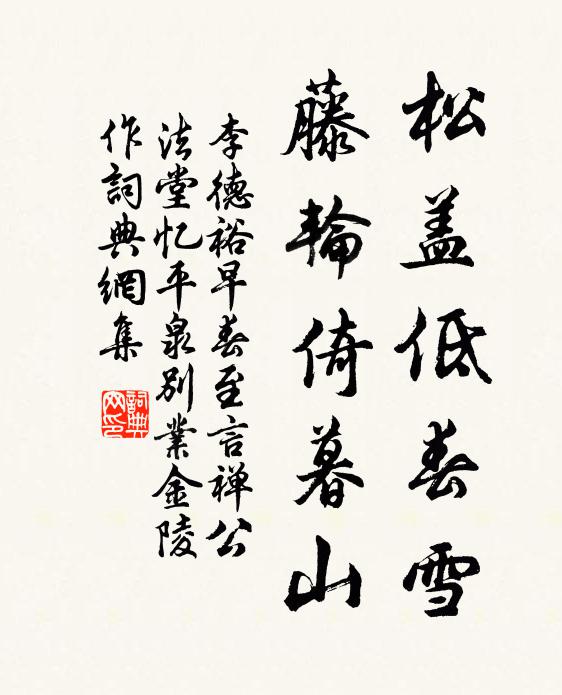 松盖低春雪
藤輪倚暮山
李德裕早春至言禅公
法堂忆平泉别業金陵
作詞典網集
詞典网印